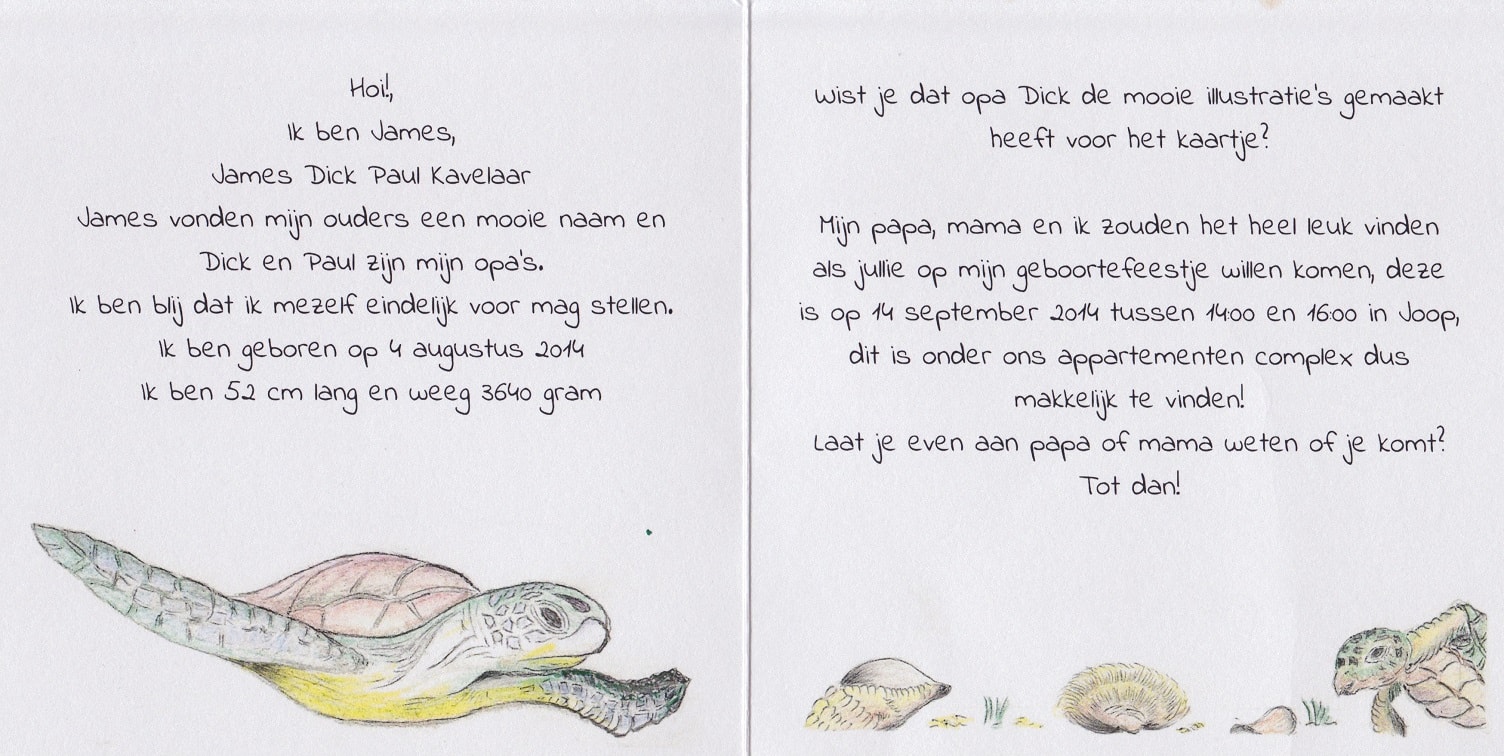 Hoi!,
Ik ben James,
James Dick Paul Kavelaar
James vonden mijn ouders een mooie naam en
Dick en Paul zijn mijn opa's.
Ik ben blij dat ik mezelf eindelijk voor mag stellen.
Ik ben geboren op 4 augustus 2014
Ik ben 52 cm lang en weeg 3640 gram
Wist je dat opa Dick de mooie illustratie's gemaakt
heeft voor het kaartje?
Mijn papa, mama en ik zouden het heel leuk vinden
als jullie op mijn geboortefeestje willen komen, deze
is op 14 september 2014 tussen 14:00 en 16:00 in Joop,
dit is onder ons appartementen complex dus
makkelijk te vinden!
Laat je even aan papa of mama weten of je komt?
Tot dan!